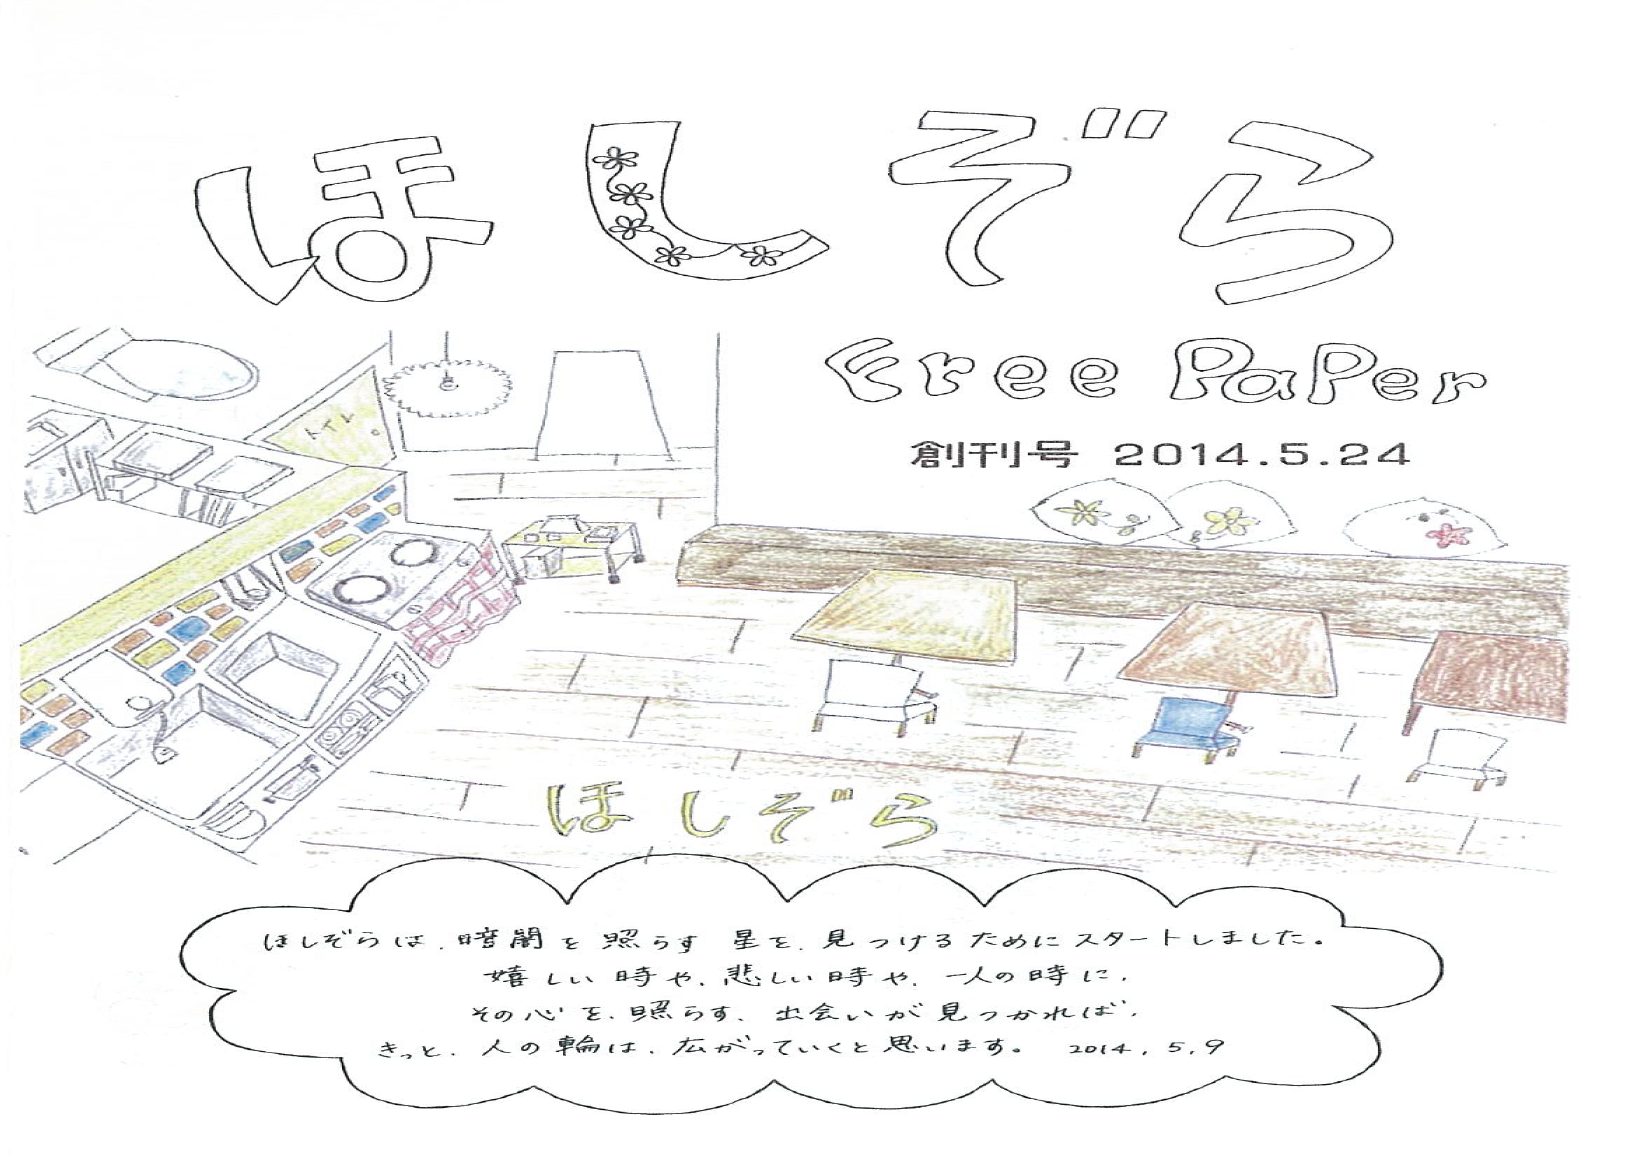 ほしぞら
Free PaPer
創刊号 2014.5.24
トイレ
ほしぞら
ほしぞらは、暗闇を照らす星を、見つけるためにスタートしました。
嬉しい時や、悲しい時や、一人の時に、
その心を、照らす、出会いが見つかれば、
きっと、人の輪は、広がっていくと思います。 2014.5.9